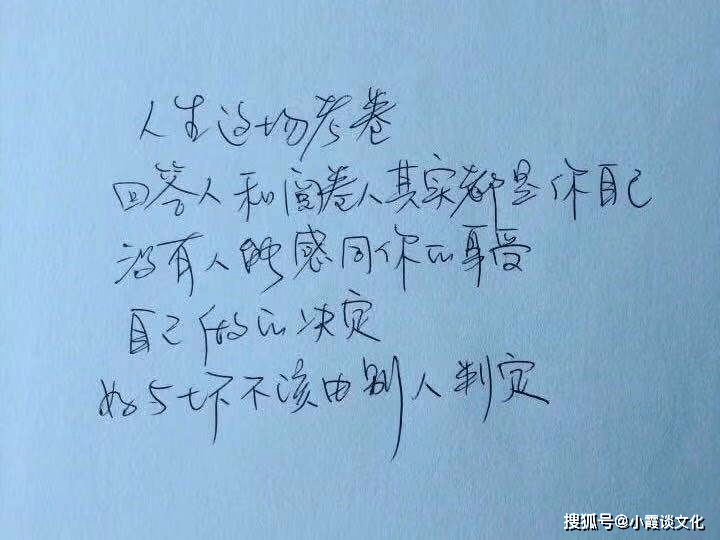 人生这场考卷
回答人和阅卷人其实都是你自己
没有人能感同你的身受
自己做的决定
好与坏不该由别人判定
搜狐号@小霞谈文化